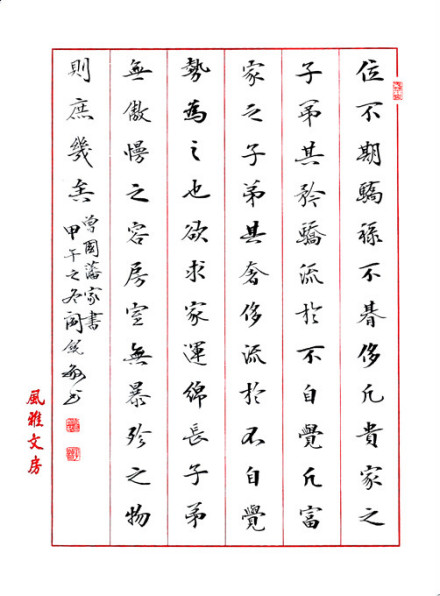 位不期驕祿不朞侈凡貴家之
子弟其矜驕流於不自覺凡富
家之子弟其奢侈流於不自覺
勢為之也欲求家運綿長子弟
無傲慢之容房室無暴殄之物
則庶幾矣
曾國藩家書
甲午之冬閻銳敏書
風雅文房